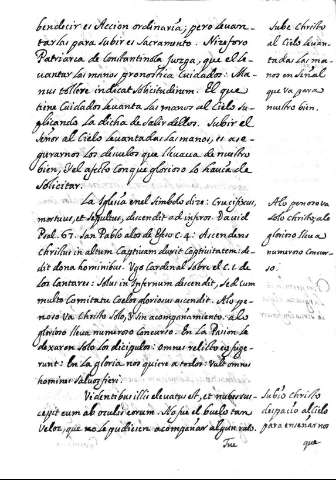 bendecir es Accion ordinaria; pero levan-
tarlas para subir es Sacramento. Nizeforo
Patriarca de Constantinola Juzga, que el le-
vantar las manos pronostica Cuidados: Ma-
nus tollere indicat Solicitudinem. El que
tiene Cuidados levanta las manos al Cielo su-
plicando la dicha de salir dellos. Subir el
Señor al Cielo levantadas las manos, es ase-
gurarnos los desvelos que llevava de nuestro
bien, y el afecto con que glorioso lo havia de
Solicitar.
Sube Christo
al Cielo levan-
tadas las ma-
nos en señal
que va para
nuestro bien.
La Iglesia en el Simbolo dize: Crucifixus,
mortuus, et Sepultus, descendit ad inferos. David
Psal. 67. San Pablo a los de Efeso C. 4: Ascendens
Christus in altum Captivam duxit Captivitatem: de-
dit dona hominibus. Ugo Cardenal Sobre el C. 1. de
los Cantares: Solus in Infernum descendit, sed cum
multo Comitatu Coelos gloriosus ascendit. A lo pe-
noso va Christo Solo, y sin acompañamiento, a lo
glorioso lleva numeroso Concurso. En la Pasion le
dexaron Solo los dicipulos: omnes relicto eo fuge-
runt: En la gloria nos quiere a todos: Vult omnes
homines salvos fieri.
A lo penoso va
Solo Christo, a lo
glorioso lleva
numeroso Concur-
so.
Videntibus illis elevatus est, et nubes sus-
cepit eum ab oculis eorum. No fue el buelo tan
veloz, que no le pudiesen acompañar algun rato.
Fue
Subio Christo
despacio al Cielo
para enseñarnos
que